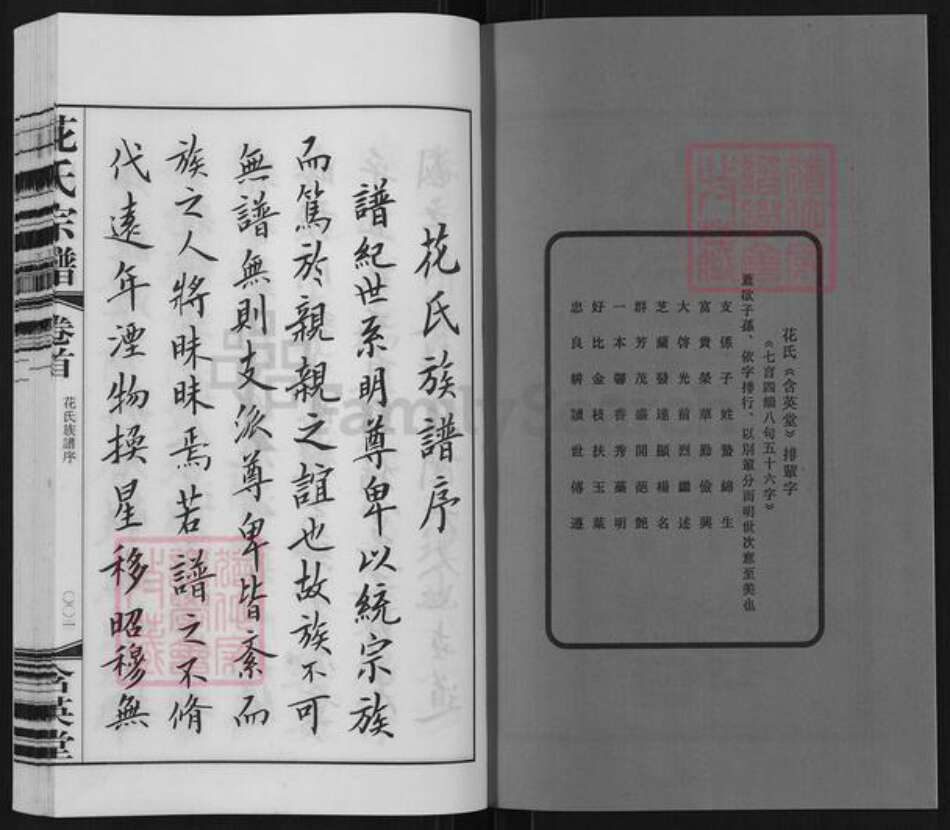 花氏《含英堂》排輩字
《七言四韻八句五十六字》
蓋欲子孫、依字排行、以別輩分而明世次意至美也
支係子姓蟄綿生
富貴榮華勤儉興
大啓光前烈繼述
芝蘭發達顯楊名
群芳茂盛開葩艷
一本馨香秀蘂明
好比金枝扶玉葉
忠良耕讀世傳遵
花氏族譜序
譜紀世系明尊卑以統宗族
而篤於親親之誼也故族不可
無譜無則支派尊卑皆紊而
族之人將昧昧焉若譜之不脩
代遠年湮物換星移昭穆無
花氏宗譜
卷首
花氏族譜序
〇〇二
含英堂